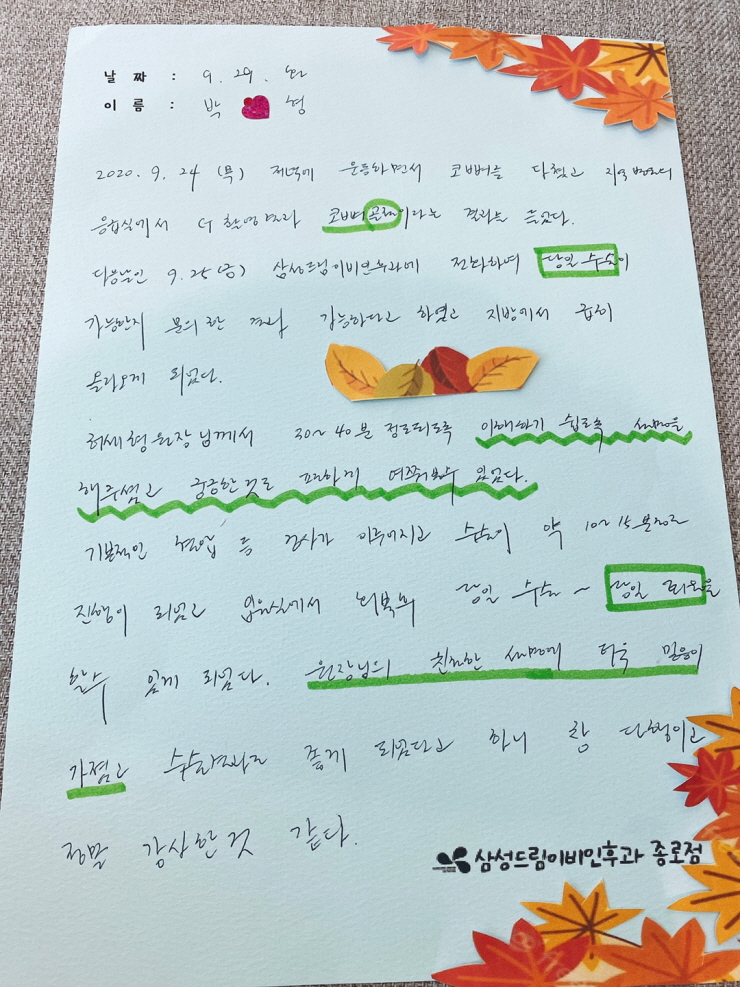 날 짜 : 9. 29. 화
이 름 : 박 형
2020. 9. 24 (목) 저녁에 운동하면서 코뼈를 다쳤고 지역 병원의
응급실에서 CT 촬영결과 코뼈 골절이라는 결과를 들었다.
다음날인 9. 25(금) 삼성드림이비인후과에 전화하여 당일 수술이
가능한지 문의한 결과 가능하다고 하였고 지방에서 급히
올라오게 되었다.
허세형원장님께서 30~40분 정도되도록 이해하기 쉽도록 설명을
해주셨고 궁금한것도 편하게 여쭤볼수 있었다.
기본적인 혈압 등 검사가 이루어지고 수술이 약 10~15분정도
진행이 되었고 입원실에서 회복후 당일 수술 ~ 당일 퇴원을
할수 있게 되었다. 원장님의 친절한 설명에 더욱 믿음이
가졌고 수술결과도 좋게 되었다고 하니 참 다행이고
정말 감사한것 같다.
삼성드림이비인후과 종로점